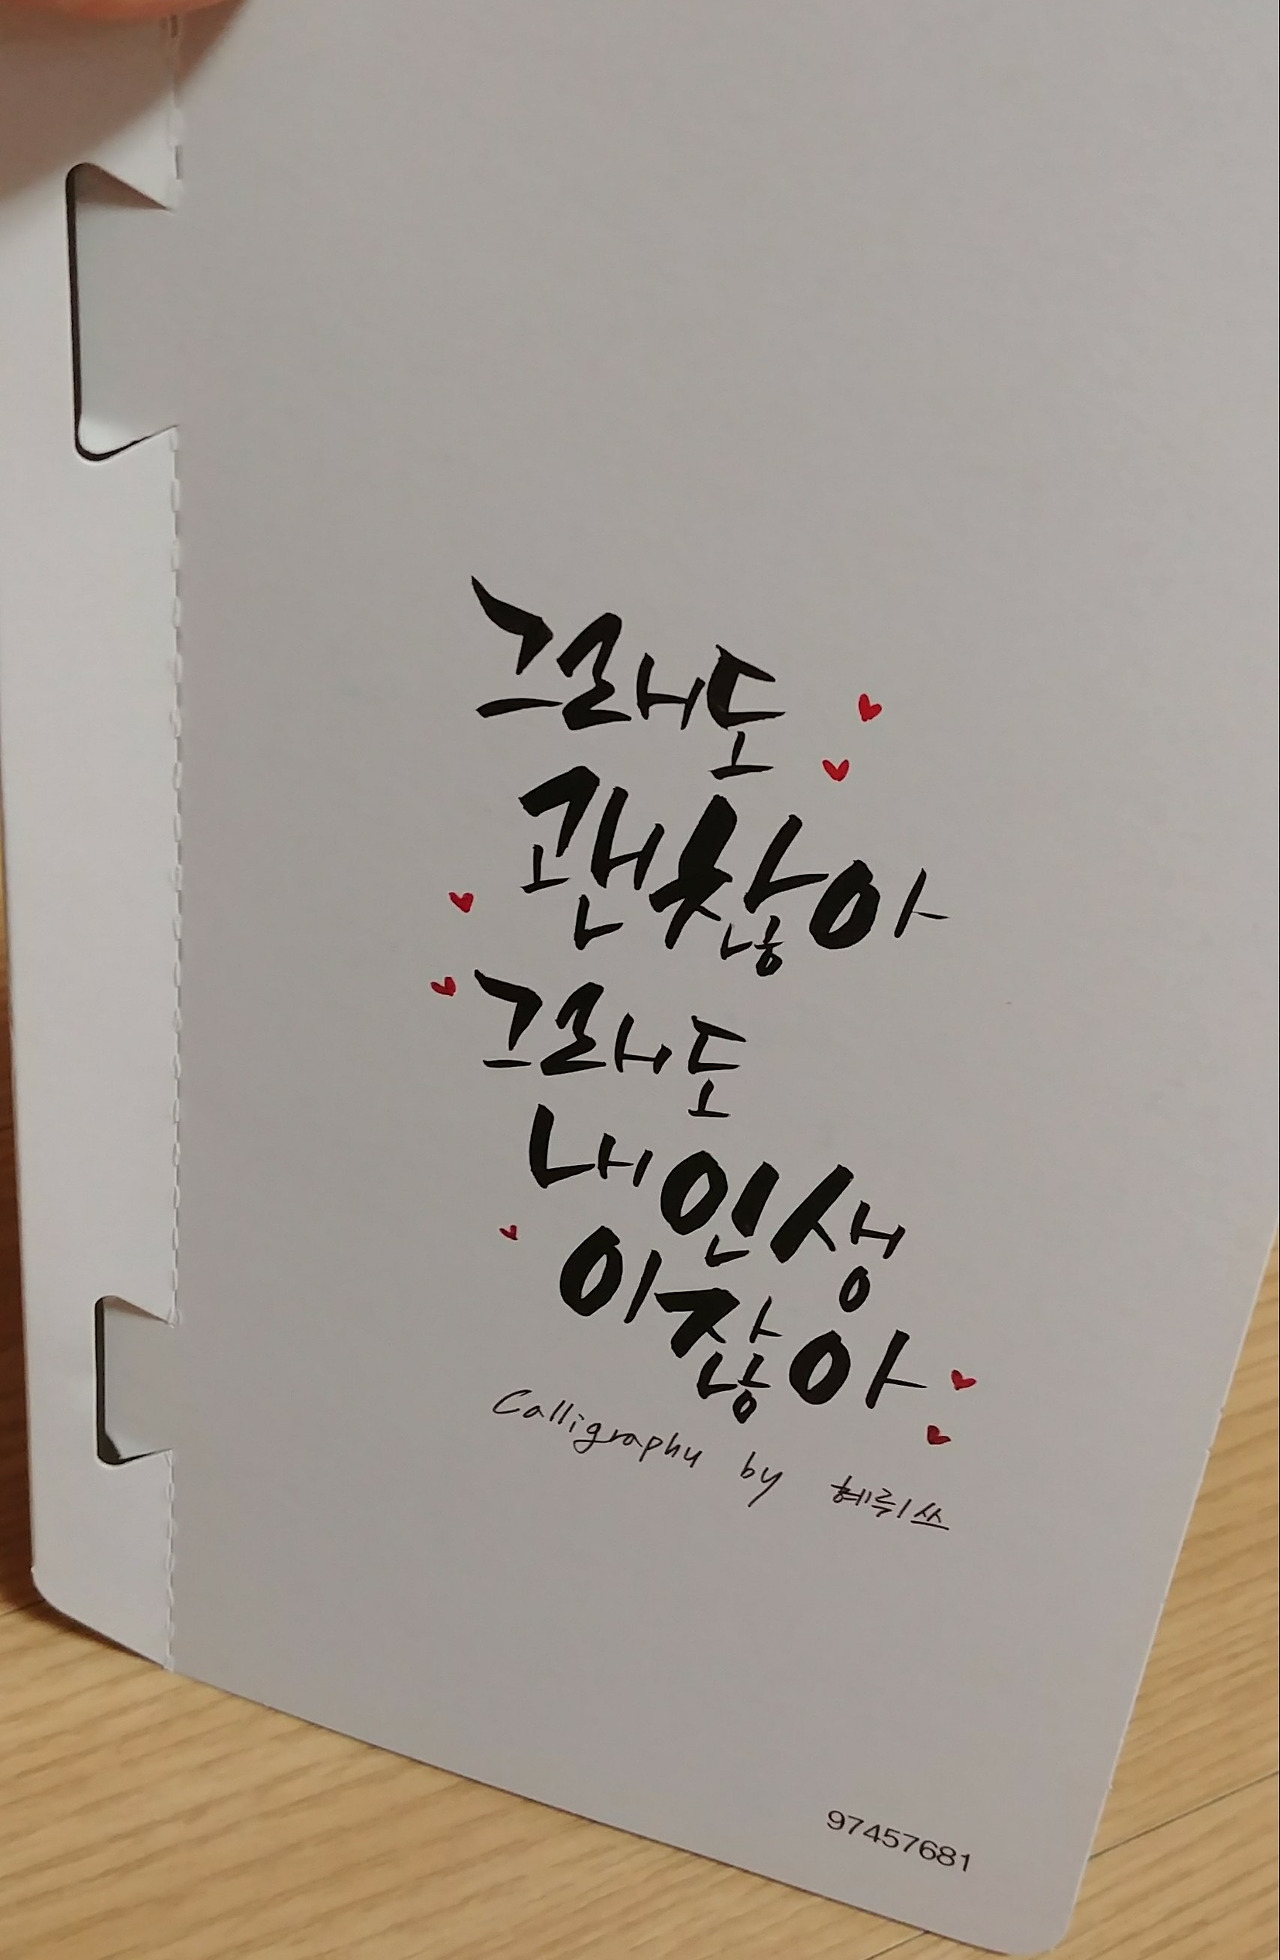 그래도
괜찮아
그래도
내인생
이잖아
Calligraphy by 혜뤼쓰
97457681